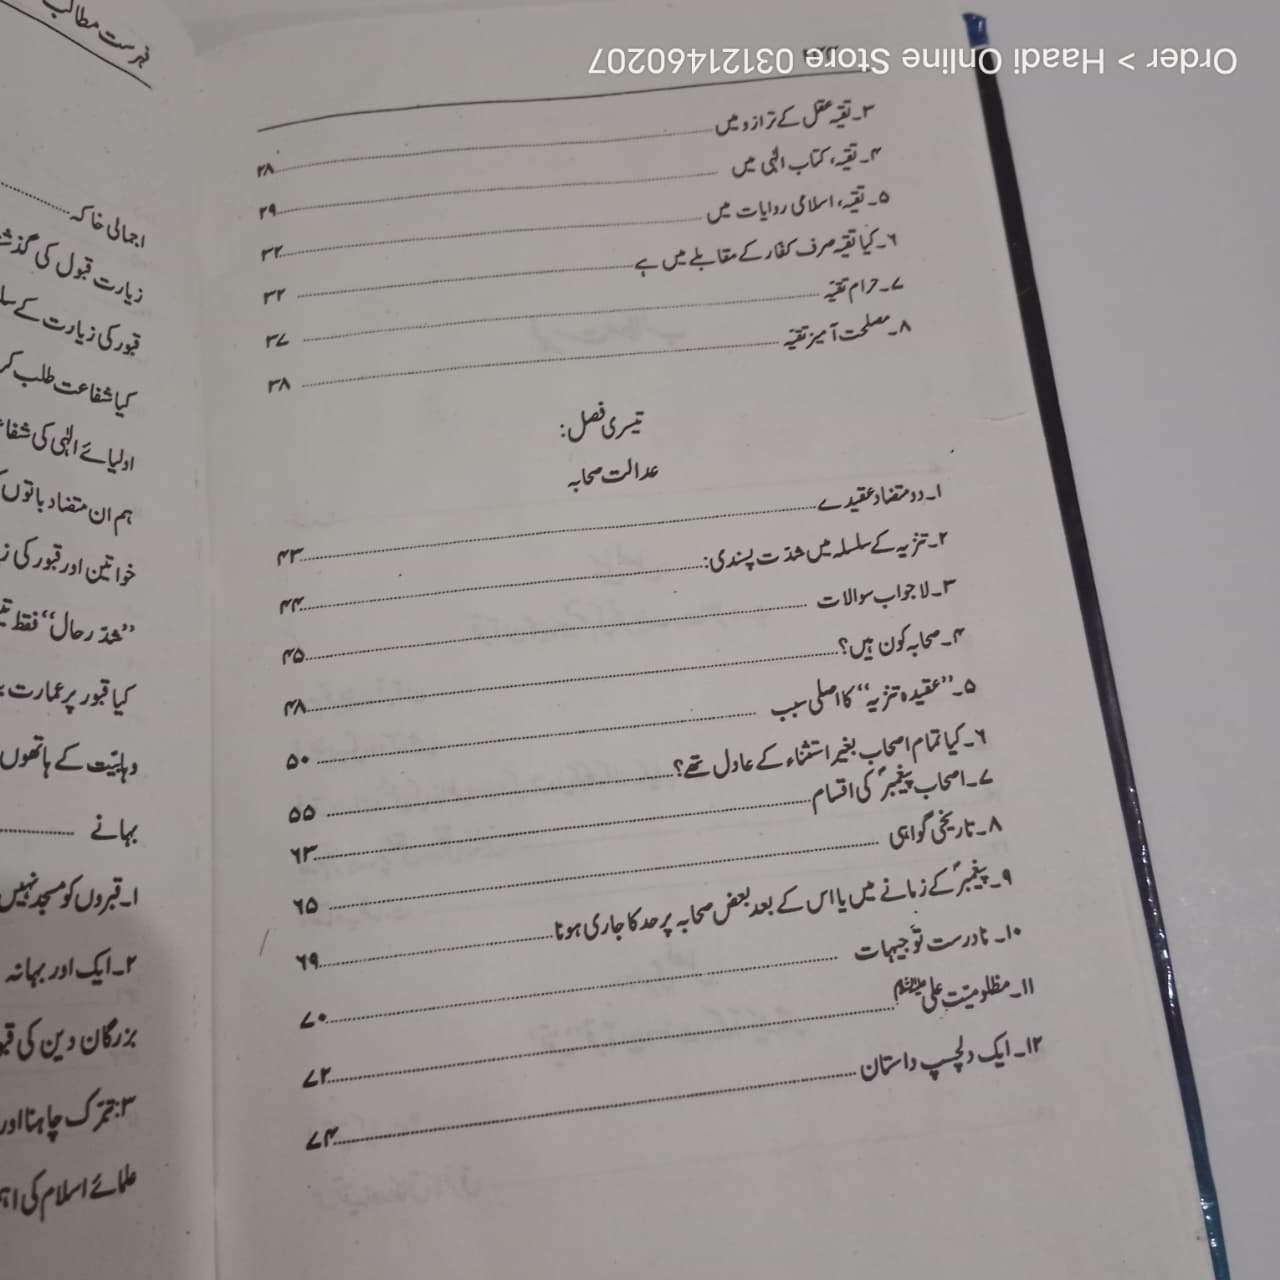 Order > Haadi Online Store 03121460207
۳۔ تقیّہ عقل کے ترازو میں ۲۸
۴۔ تقیّہ، کتاب الٰہی میں ۲۹
۵۔ تقیّہ، اسلامی روایات میں ۳۲
۶۔ کیا تقیّہ صرف کفار کے مقابلے میں ہے ۳۲
۷۔ حرام تقیّہ ۳۷
۸۔ مصلحت آمیز تقیّہ ۳۸
تیسری فصل:
عدالت صحابہ
۱۔ دو متضاد عقیدے ۴۳
۲۔ تنزیہ کے سلسلہ میں شدّت پسندی: ۴۴
۳۔ لاجواب سوالات ۴۵
۴۔ صحابہ کون ہیں؟ ۴۸
۵۔ ”عقیدہ تنزیہ“ کا اصلی سبب ۵۰
۶۔ کیا تمام اصحاب بغیر استثناء کے عادل تھے؟ ۵۵
۷۔ اصحاب پیغمبرؐ کی اقسام ۶۳
۸۔ تاریخی گواہی ۶۵
۹۔ پیغمبرؐ کے زمانے میں یا اس کے بعد بعض صحابہ پر حد کا جاری ہونا ۶۹
۱۰۔ نادرست توجیہات ۷۰
۱۱۔ مظلومیّت علی علیہ السلام ۷۲
۱۲۔ ایک دلچسپ داستان ۷۴
فہرست مطالب
اجمالی خاکہ
زیارت قبول کی
قبور کی زیارت کے
کیا شفاعت طلب
اولیائے الٰہی کی
ہم ان متضاد باتوں
خواتین اور قبور کی
”شدّ رحال“ فقط
کیا قبور پر عمارت
وہابیّت کے ہاتھوں
بہانے
۱۔ قبروں کو مسجد نہیں
۲۔ ایک اور بہانہ
بزرگان دین کی
۳: تبرّک چاہنا اور
علمائے اسلام کی